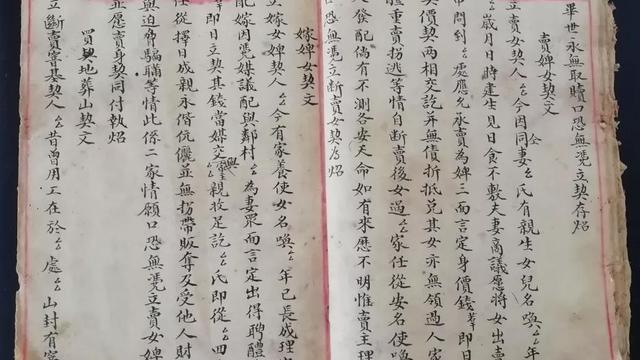 畢世永無取贖口恐無凴立契存炤
賣婢女契文
立賣女契人厶今因仝妻厶氏有親生女兒名喚厶年
厶歲月日時建生見日食不敷夫妻商議愿將女出賣
帶問到厶處應允永賣為婢三面言定身價錢若干即日
契價兩相交訖並無債折抵兑其女亦無領過人家
體重賣拐逃等情自斷賣後女過厶家任從安名使喚
人發配倘有不測各安天命如有來歷不明惟賣主理
口恐無凴立斷賣女契為炤
嫁婢女契文
立嫁女婢契人厶今有家養使女名喚厶年已長成理
配嫁因凴媒議配與鄰村厶為妻眾面言定出得聘禮
若干即日立契其錢當媒交與親收足訖厶氏即從厶四
任從擇日成親永偕伉儷並無拐帶販奪及受他人財
與迫脅騙瞞等情此係二家情願口恐無凴立賣女婢
並愿賣身契同付執炤
買契地葬山契文
立斷賣窨基契人厶昔曾用工在於厶處厶山封有窨